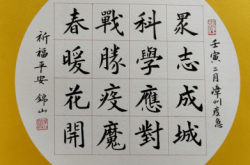 壬寅二月漳州應急
眾志成城
科學應對
戰勝疫魔
春暖花開
祈福平安 錦山